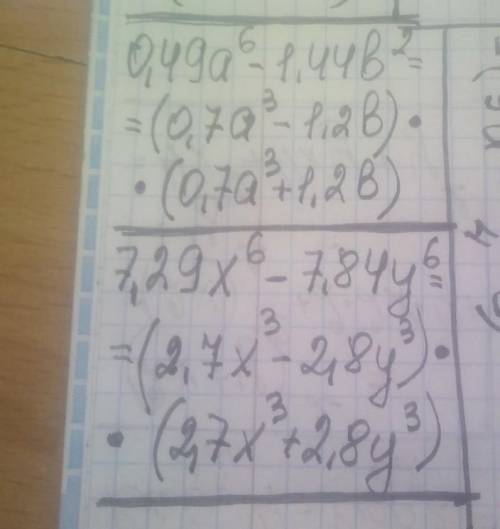 0,49a⁶ - 1,44b² =
= (0,7a³ - 1,2b) •
• (0,7a³ + 1,2b)
7,29x⁶ - 7,84y⁶ =
= (2,7x³ - 2,8y³) •
• (2,7x³ + 2,8y³)